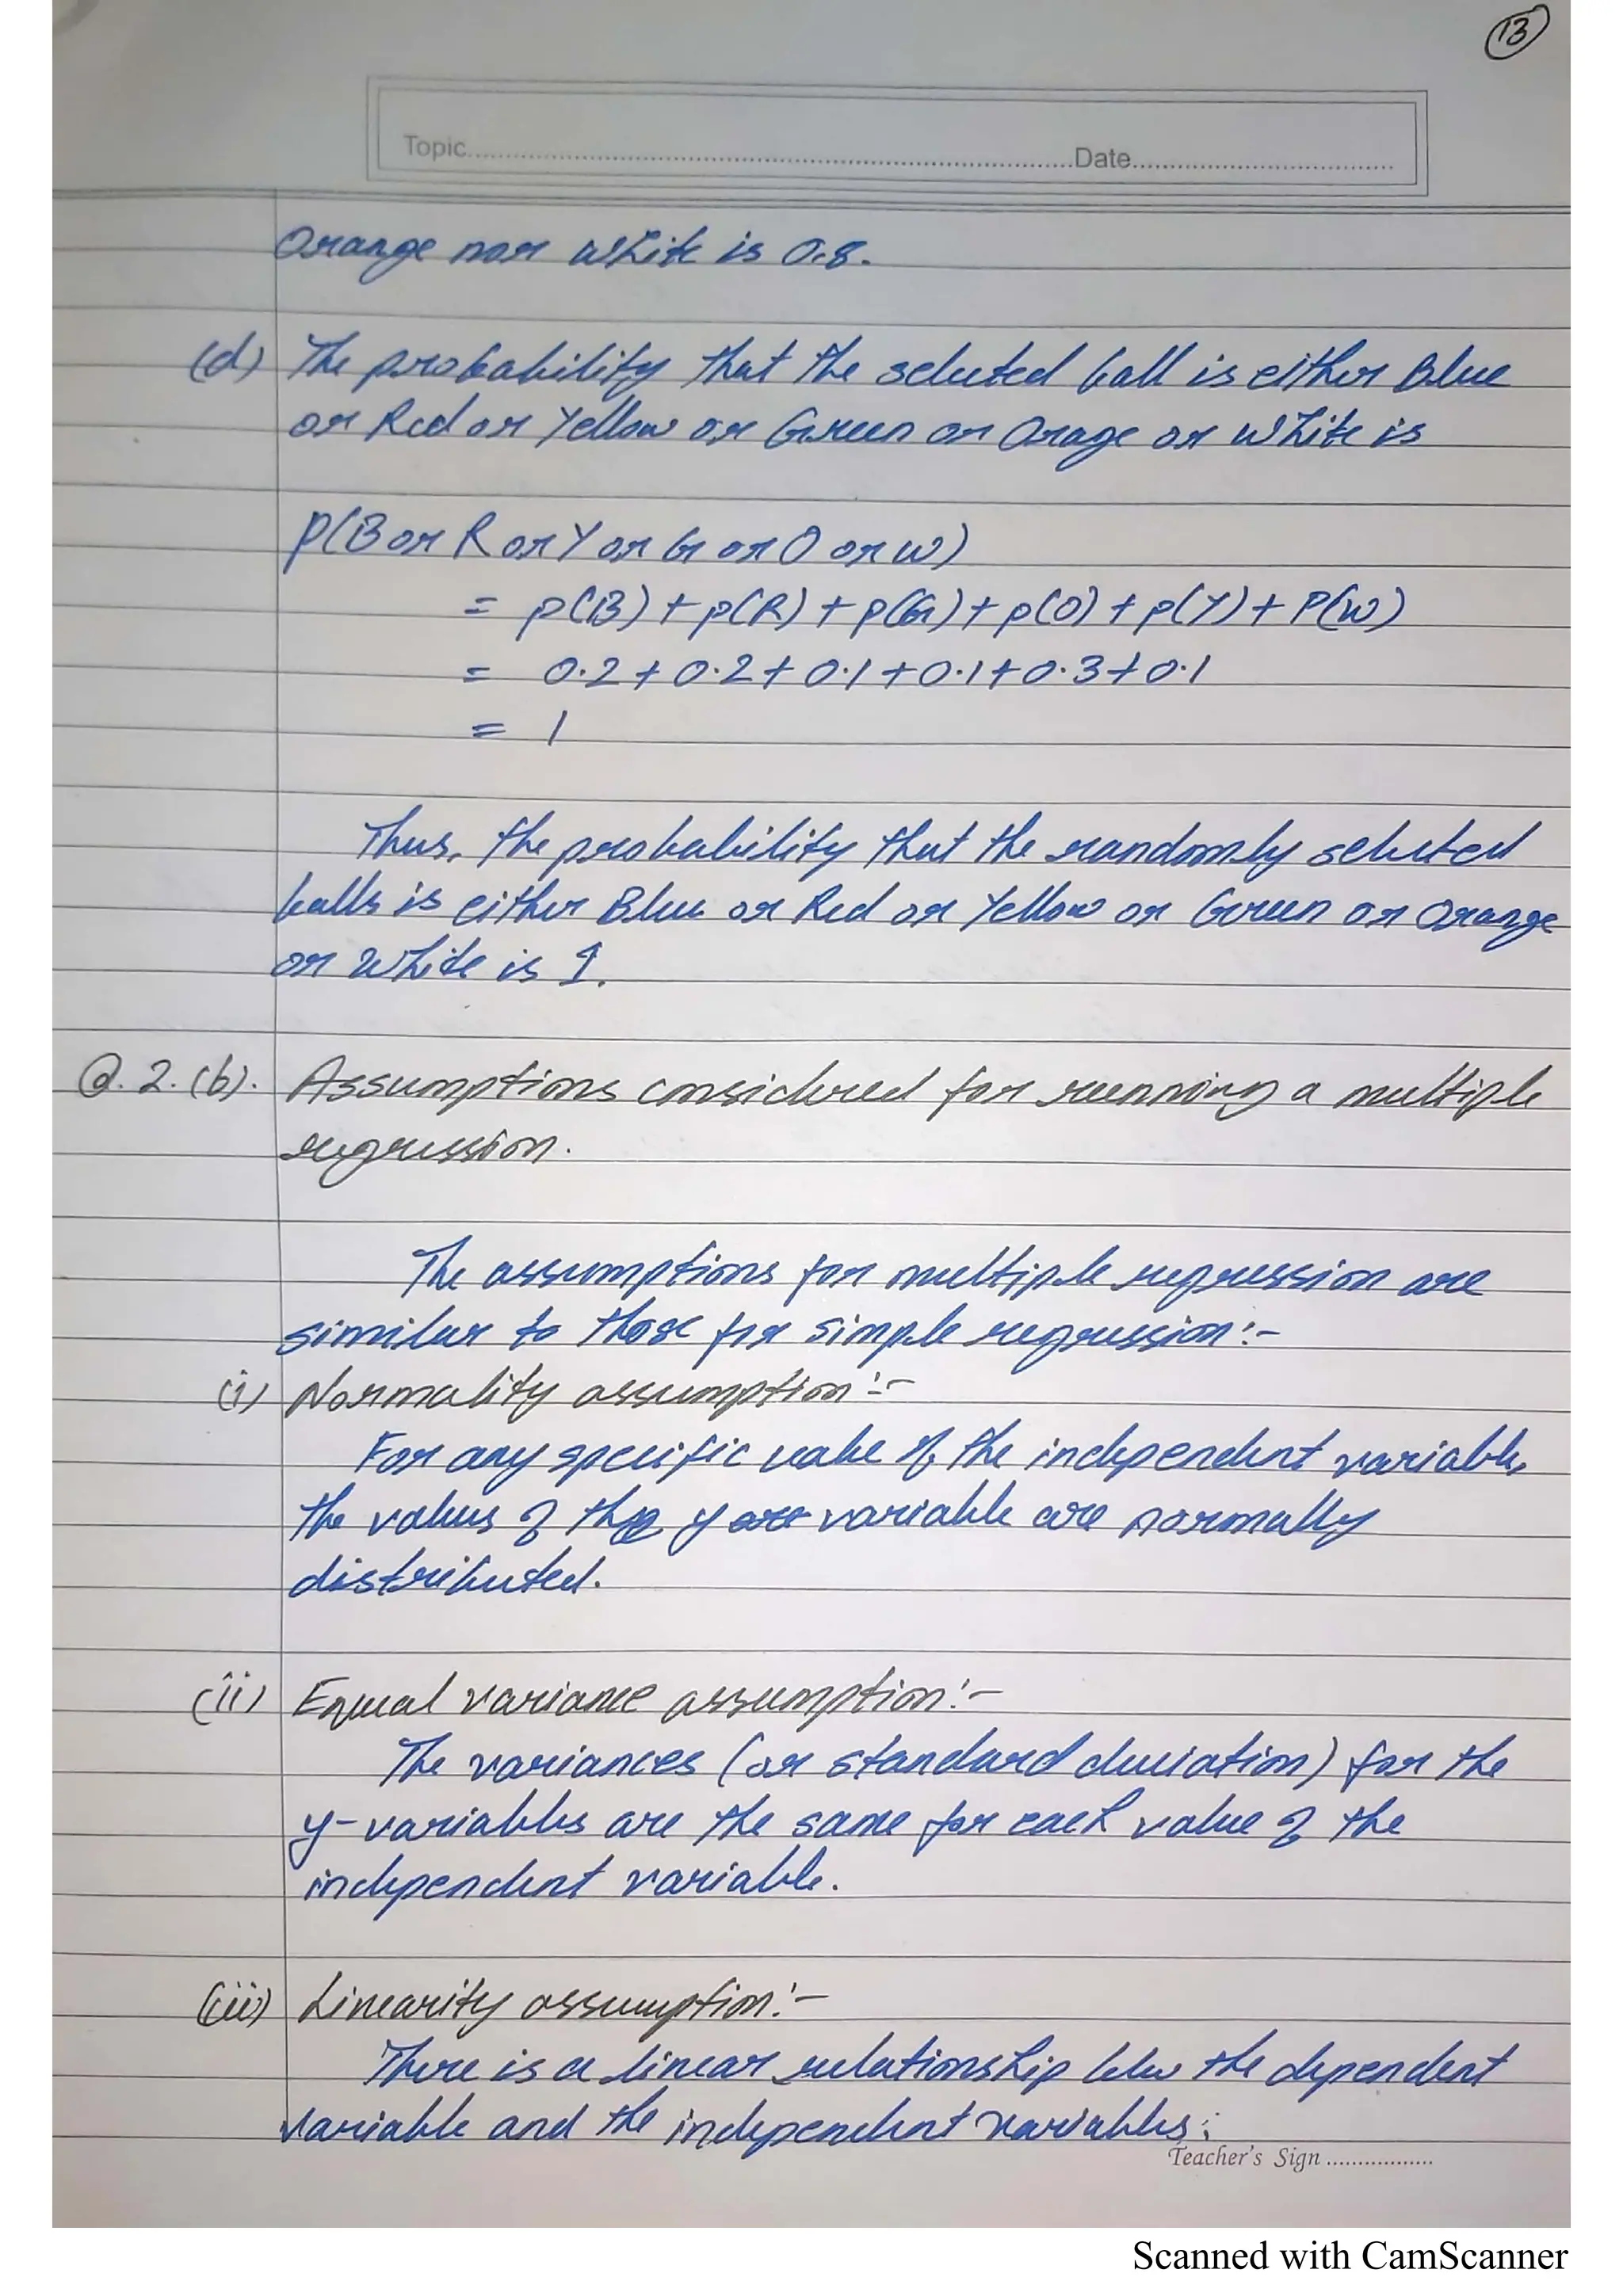 13
Topic..........Date..........
Orange nor white is 0.8.
(d) The probability that the selected ball is either Blue
or Red or Yellow or Green or Orage or White is
P(B or R or Y or G or O or W)
= p(B) + p(R) + p(G) + p(O) + p(Y) + P(W)
= 0.2 + 0.2 + 0.1 + 0.1 + 0.3 + 0.1
= 1
Thus, the probability that the randomly selected
balls is either Blue or Red or Yellow or Green or Orange
or White is 1.
Q. 2. (b). Assumptions considered for running a multiple
regression.
The assumptions for multiple regression are
similar to those for simple regression:-
(i) Normality assumption:-
For any specific value of the independent variable,
the values of the y variable are normally
distributed.
(ii) Equal variance assumption:-
The variances (or standard deviation) for the
y-variables are the same for each value of the
independent variable.
(iii) Linearity assumption:-
There is a linear relationship b/w the dependent
variable and the independent variables.
Teacher's Sign ..................
Scanned with CamScanner